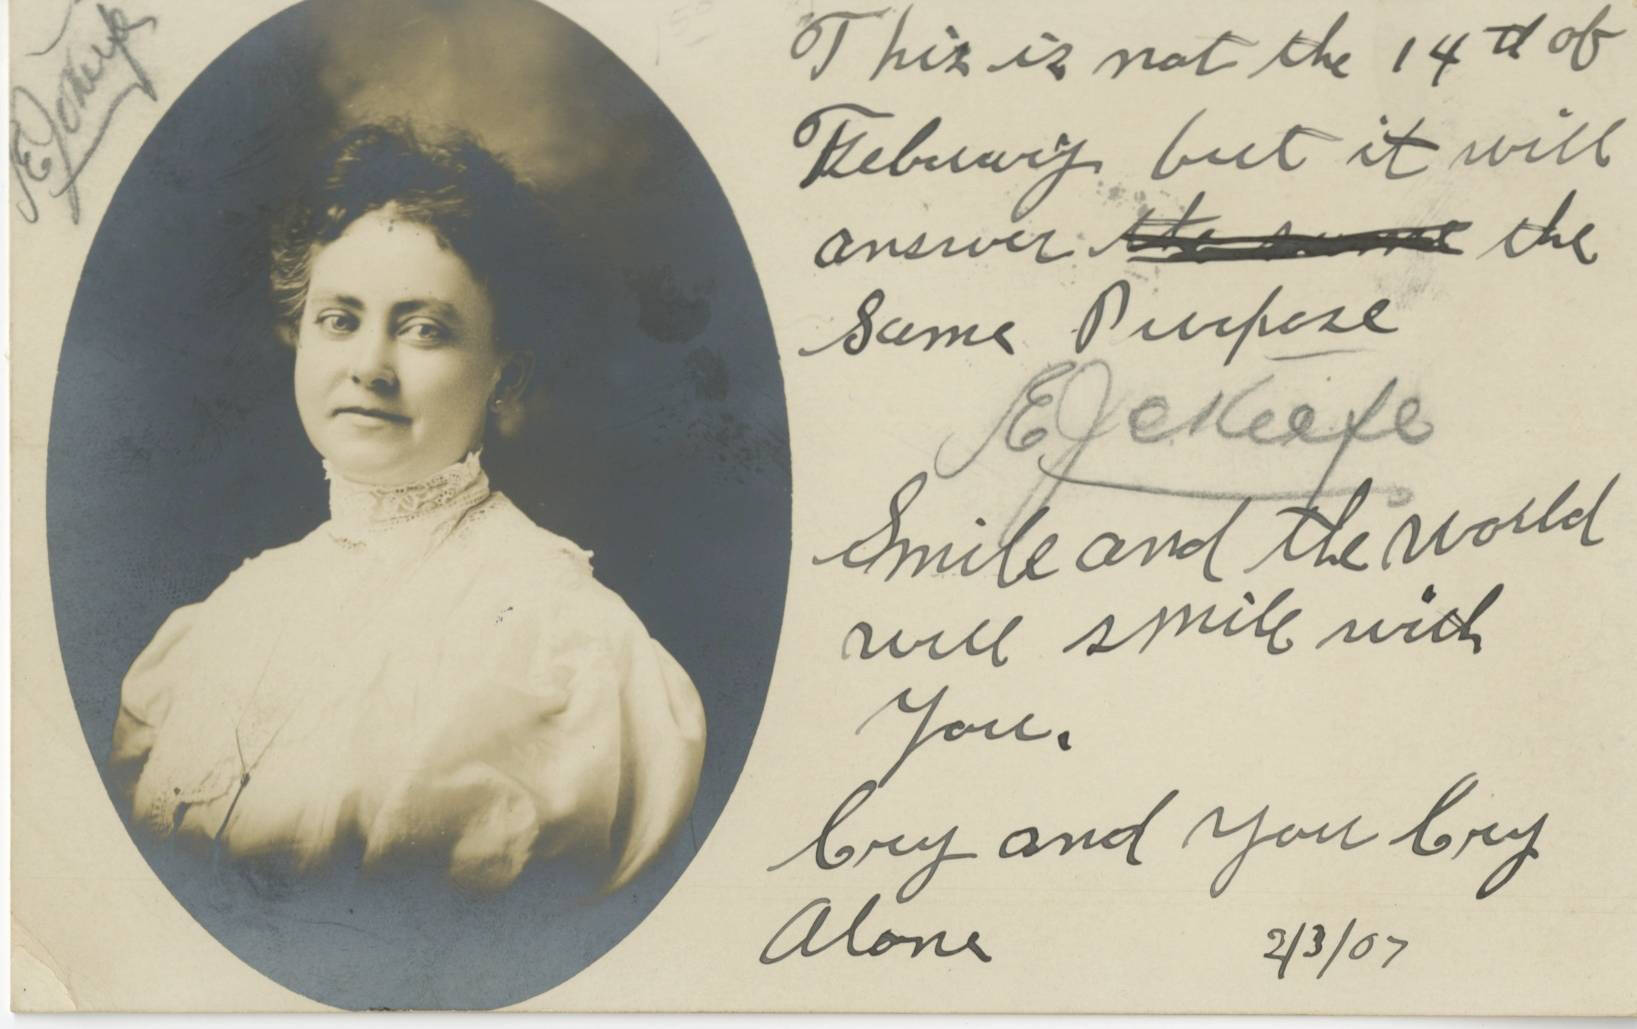 This is not the 14th of
Febuary but it will
answer the same the
same Purpose
E J McKeefe
Smile and the world
will smile with
you.
Cry and you Cry
Alone
2/3/07